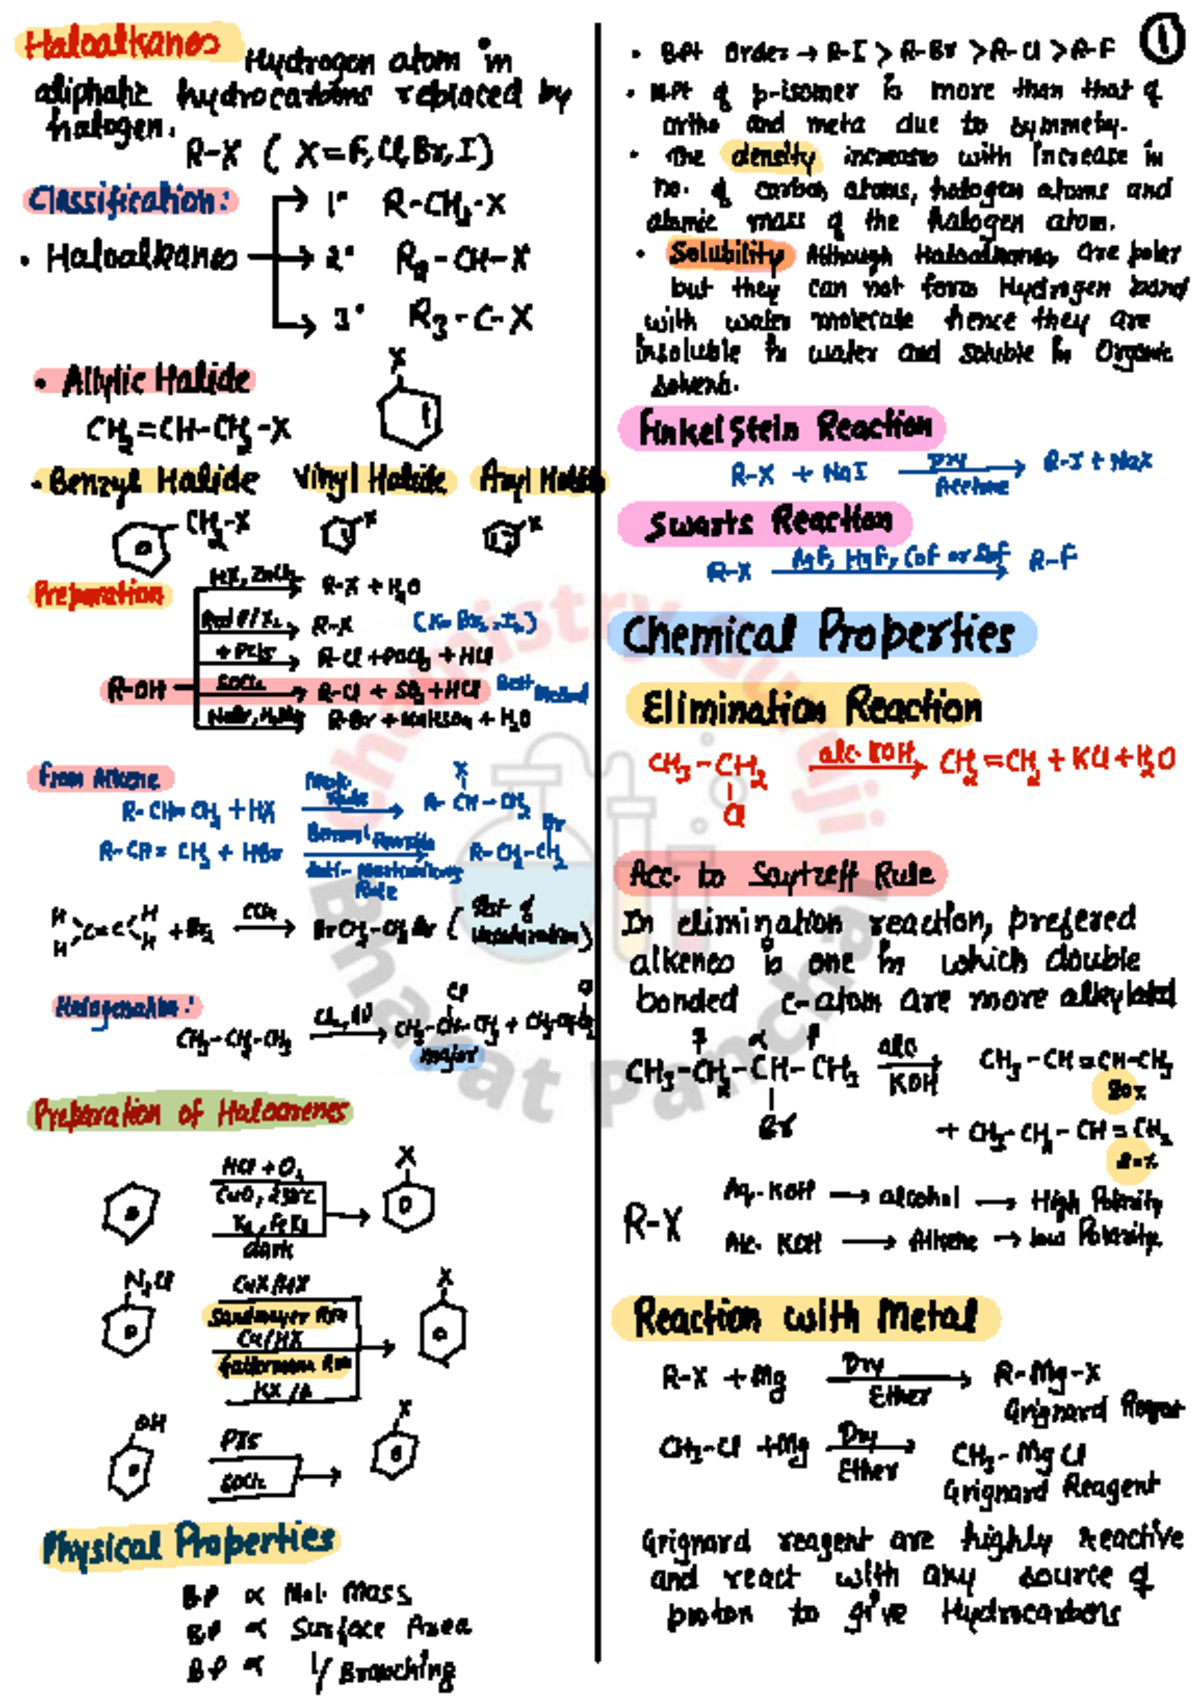 Haloalkanes Hydrogen atom in
aliphatic hydrocarbons replaced by
halogen.
R-X ( X=F, Cl, Br, I )
Classification:
1° R-CH₂-X
• Haloalkanes 2° R₂-CH-X
3° R₃-C-X
• Allylic Halide
X
CH₂=CH-CH₂-X
• Benzyl Halide Vinyl Halide Aryl Halide
CH₂-X X X
Preparation
HX, ZnCl₂ R-X + H₂O
Red P/X₂ R-X (X= Br₂, I₂)
+ PCl₅ R-Cl + POCl₃ + HCl
R-OH SOCl₂ R-Cl + SO₂ + HCl Best Method
NaBr, H₂SO₄ R-Br + NaHSO₄ + H₂O
From Alkene
X
R-CH=CH₂ + HX Mark Rule R-CH-CH₃
Br
R-CH=CH₂ + HBr Benzoyl Peroxide R-CH₂-CH₂
Anti-Markovnikov Rule
H H
C=C + Br₂ CCl₄ BrCH₂-CH₂Br ( Test of
H H Unsaturation)
Halogenation:
Cl Cl
CH₃-CH₂-CH₃ Cl₂, UV CH₃-CH-CH₃ + CH₃CH₂CH₂
major
Preparation of Haloarenes
HCl + O₂ X
CuO, 230°C
X₂, FeX₃
dark
N₂Cl CuX/HX X
Sandmeyer Rxn
Cu/HX
Gattermann Rxn
KX/Δ
OH X
PX₅
SOCl₂
Physical Properties
BP ∝ Mol. Mass
BP ∝ Surface Area
BP ∝ 1/Branching
①
• BPt Order → R-I > R-Br > R-Cl > R-F
• MPt of p-isomer is more than that of
ortho and meta due to symmetry.
• The density increases with increase in
no. of carbon atoms, halogen atoms and
atomic mass of the halogen atom.
• Solubility Although Haloalkanes are polar
but they can not form Hydrogen bond
with water molecule hence they are
insoluble in water and soluble in Organic
solvent.
Finkelstein Reaction
R-X + NaI Dry Acetone R-I + NaX
Swarts Reaction
R-X AgF, HgF, CoF or SbF R-F
Chemical Properties
Elimination Reaction
CH₃-CH₂ alc. KOH CH₂=CH₂ + KCl + H₂O
Cl
Acc. to Saytzeff Rule
In elimination reaction, prefered
alkenes is one in which double
bonded c-atom are more alkylated
β α β
CH₃-CH₂-CH-CH₃ alc KOH CH₃-CH=CH-CH₃
80%
Br + CH₃-CH₂-CH=CH₂
20%
Aq. KOH → alcohol → High Polarity
R-X
Alc. KOH → Alkene → low Polarity.
Reaction with Metal
R-X + Mg Dry Ether R-Mg-X
Grignard Reagent
CH₃-Cl + Mg Dry Ether CH₃-MgCl
Grignard Reagent
Grignard reagent are highly reactive
and react with any source of
proton to give Hydrocarbons
Chemistry Guruji
Bharat Panchal